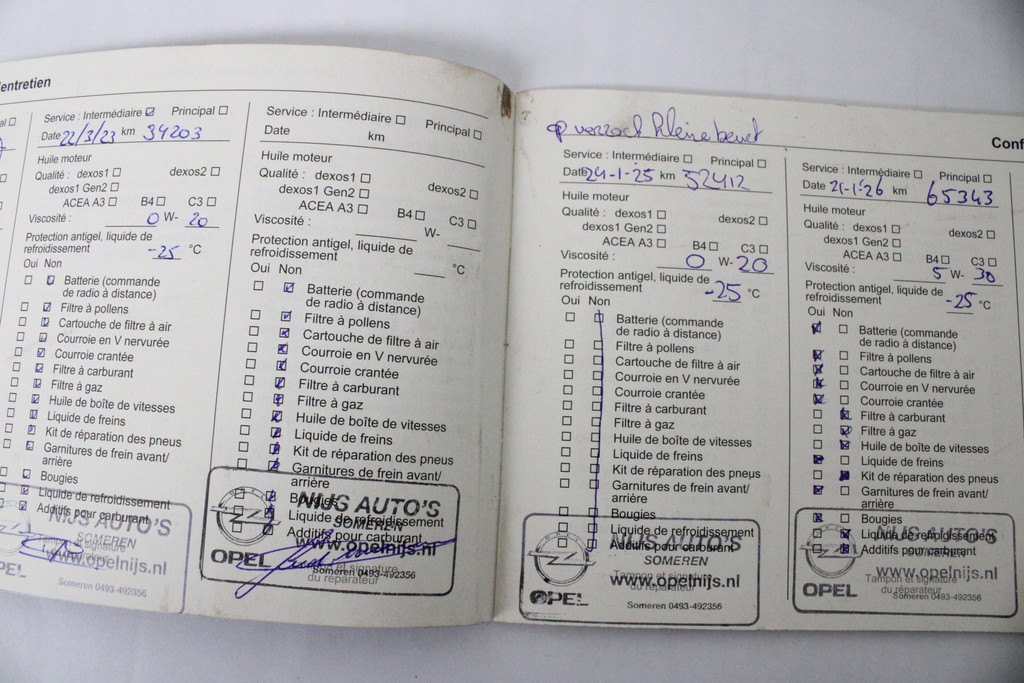 entretien
Service : Intermédiaire ☑ Principal ☐
Date 22/3/23 km 34203
Huile moteur
Qualité : dexos1 ☐ dexos2 ☐
dexos1 Gen2 ☐
ACEA A3 ☐ B4 ☐ C3 ☐
Viscosité : 0 W- 20
Protection antigel, liquide de
refroidissement -25 °C
Oui Non
Batterie (commande
de radio à distance)
Filtre à pollens
Cartouche de filtre à air
Courroie en V nervurée
Courroie crantée
Filtre à carburant
Filtre à gaz
Huile de boîte de vitesses
Liquide de freins
Kit de réparation des pneus
Garnitures de frein avant/
arrière
Bougies
Liquide de refroidissement
Additifs pour carburant
NIJS AUTO'S
SOMEREN
Tampon et signature
www.opelnijs.nl
Someren 0493-492356
Service : Intermédiaire ☐ Principal ☐
Date km
Huile moteur
Qualité : dexos1 ☐ dexos2 ☐
dexos1 Gen2 ☐
ACEA A3 ☐ B4 ☐ C3 ☐
Viscosité : W-
Protection antigel, liquide de
refroidissement °C
Oui Non
Batterie (commande
de radio à distance)
Filtre à pollens
Cartouche de filtre à air
Courroie en V nervurée
Courroie crantée
Filtre à carburant
Filtre à gaz
Huile de boîte de vitesses
Liquide de freins
Kit de réparation des pneus
Garnitures de frein avant/
arrière
Bougies
Liquide de refroidissement
Additifs pour carburant
NIJS AUTO'S
SOMEREN
www.opelnijs.nl
OPEL
Tampon et signature
du réparateur
Someren 0493-492356
op verzoek kleine beurt
Service : Intermédiaire ☐ Principal ☐
Date 24-1-25 km 52412
Huile moteur
Qualité : dexos1 ☐ dexos2 ☐
dexos1 Gen2 ☐
ACEA A3 ☐ B4 ☐ C3 ☐
Viscosité : 0 W- 20
Protection antigel, liquide de
refroidissement -25 °C
Oui Non
Batterie (commande
de radio à distance)
Filtre à pollens
Cartouche de filtre à air
Courroie en V nervurée
Courroie crantée
Filtre à carburant
Filtre à gaz
Huile de boîte de vitesses
Liquide de freins
Kit de réparation des pneus
Garnitures de frein avant/
arrière
Bougies
Liquide de refroidissement
Additifs pour carburant
NIJS AUTO'S
SOMEREN
Tampon et signature
www.opelnijs.nl
du réparateur
OPEL
Someren 0493-492356
Conf
Service : Intermédiaire ☐ Principal ☐
Date 21-1-26 km 65343
Huile moteur
Qualité : dexos1 ☐ dexos2 ☐
dexos1 Gen2 ☐
ACEA A3 ☐ B4 ☐ C3 ☐
Viscosité : 5 W- 30
Protection antigel, liquide de
refroidissement -25 °C
Oui Non
Batterie (commande
de radio à distance)
Filtre à pollens
Cartouche de filtre à air
Courroie en V nervurée
Courroie crantée
Filtre à carburant
Filtre à gaz
Huile de boîte de vitesses
Liquide de freins
Kit de réparation des pneus
Garnitures de frein avant/
arrière
Bougies
Liquide de refroidissement
Additifs pour carburant
NIJS AUTO'S
SOMEREN
www.opelnijs.nl
Tampon et signature
du réparateur
OPEL
Someren 0493-492356